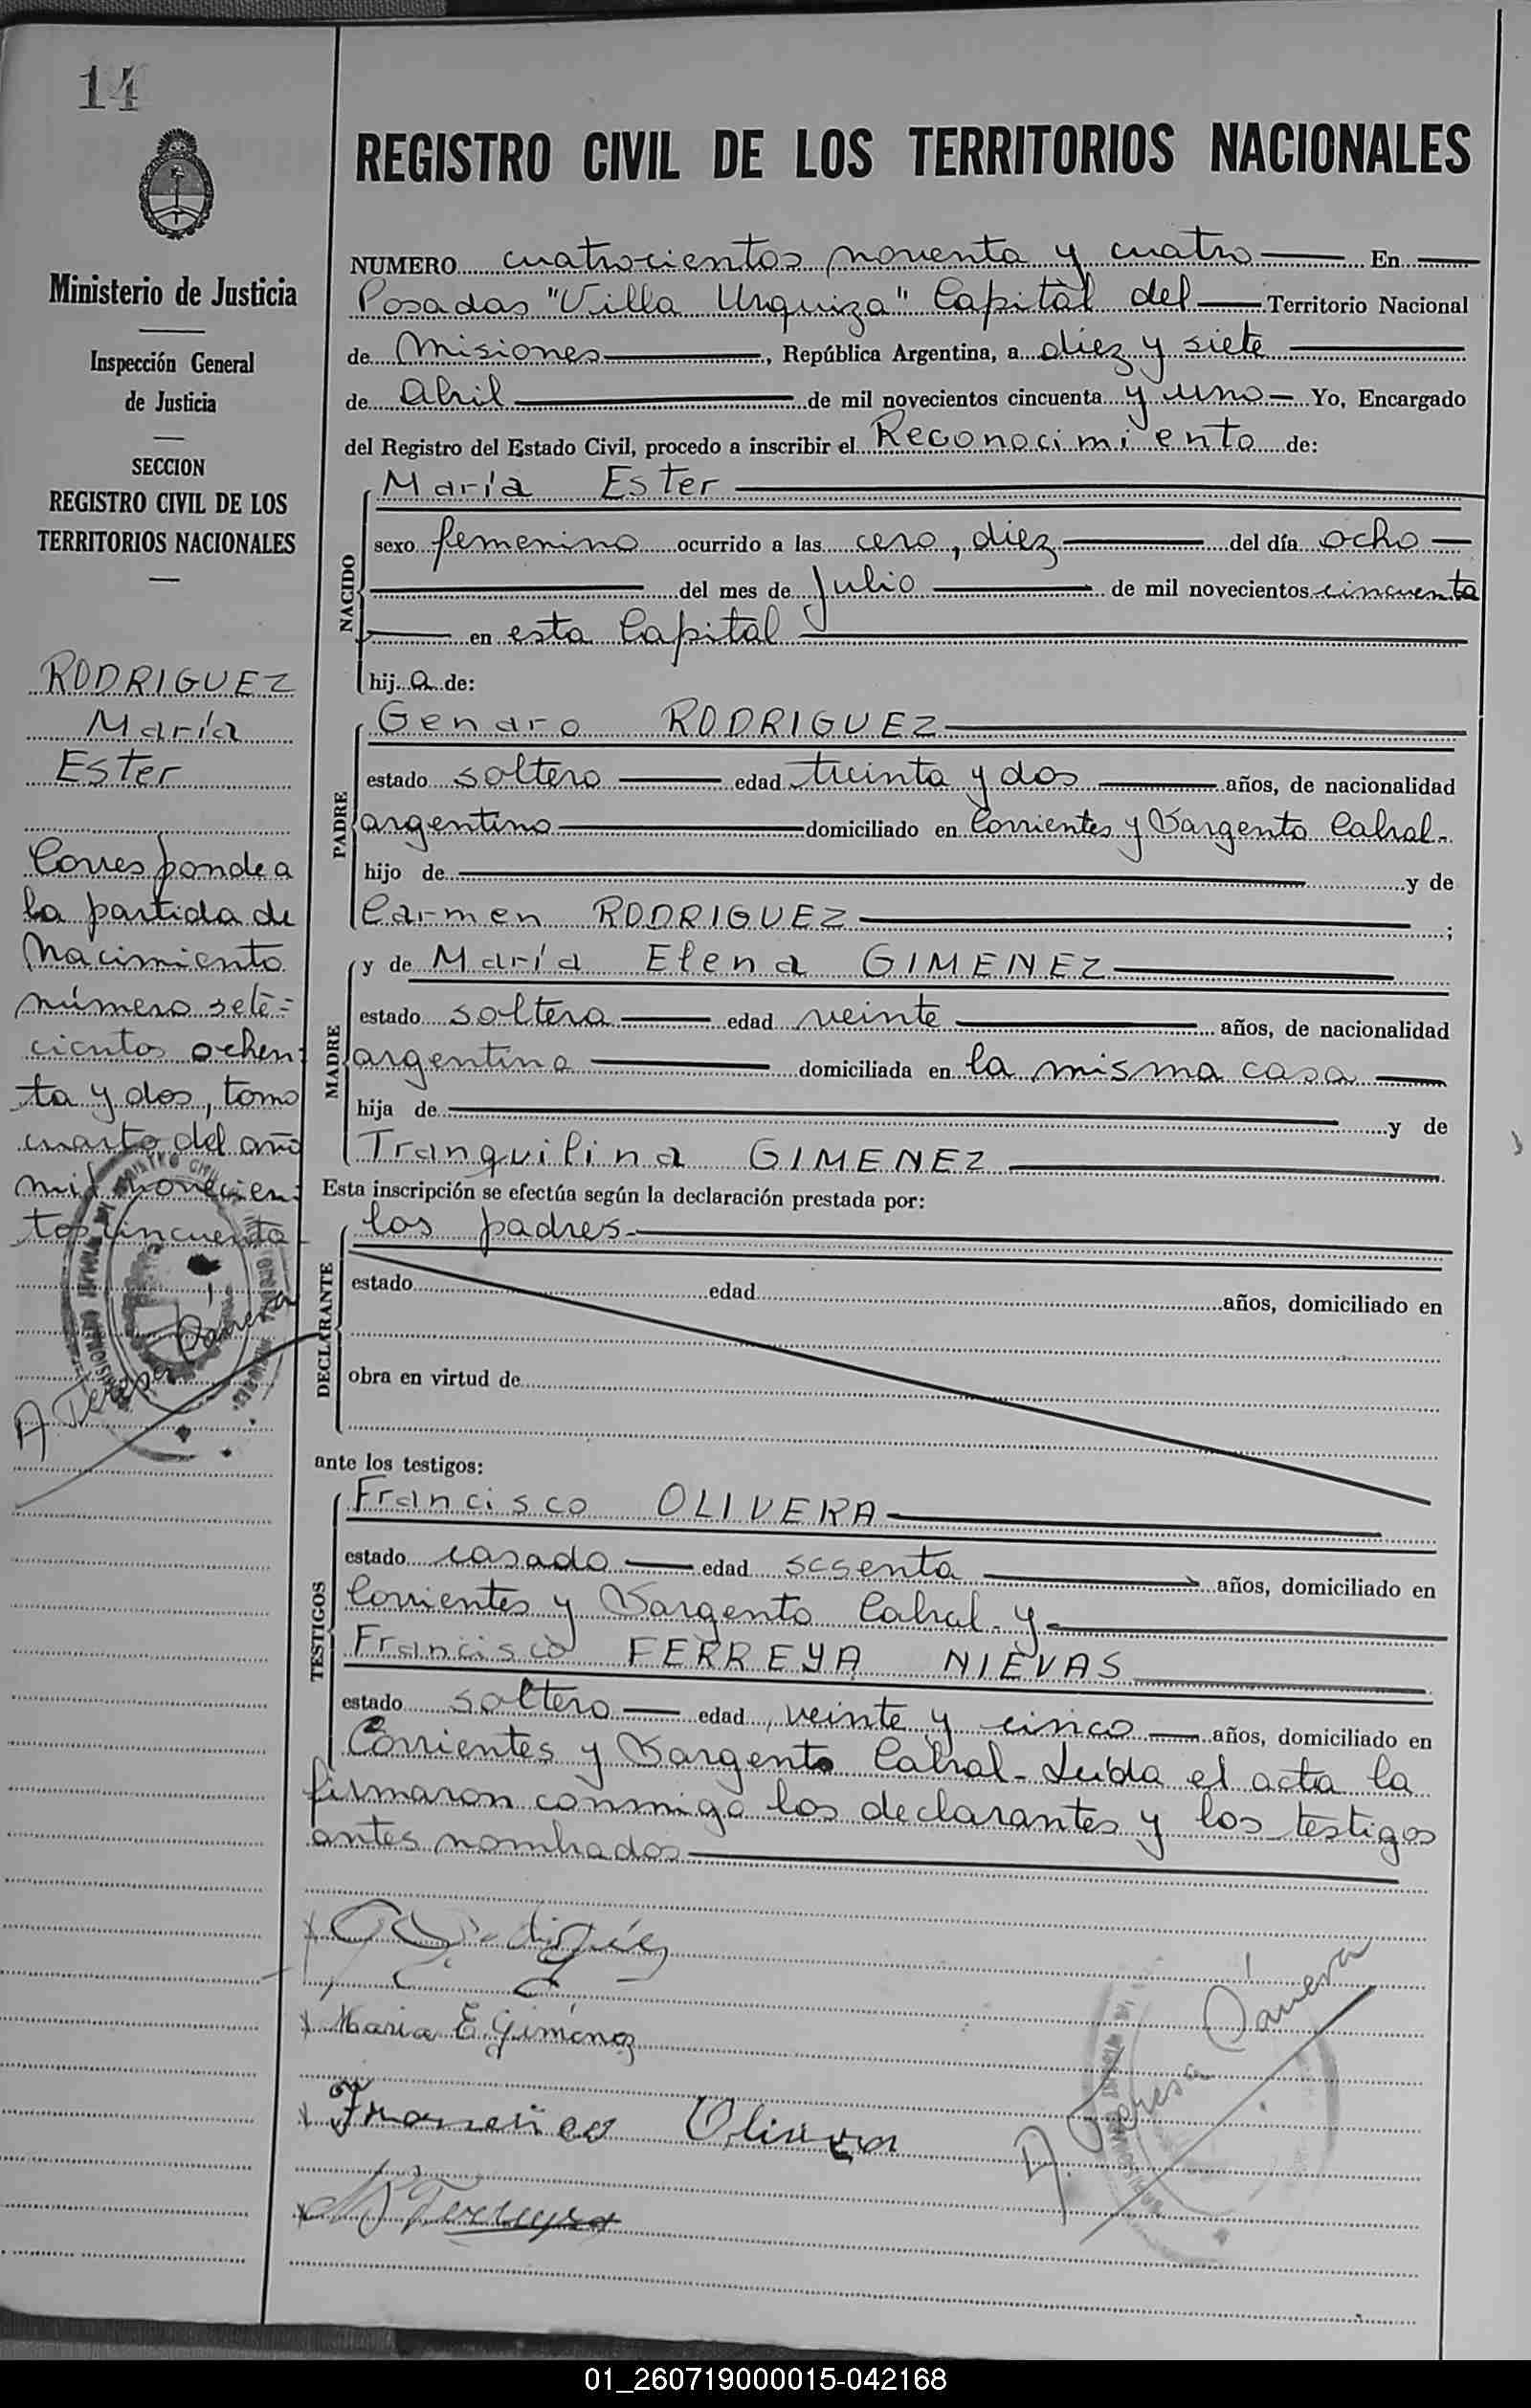 14
REGISTRO CIVIL DE LOS TERRITORIOS NACIONALES
Ministerio de Justicia
Inspección General
de Justicia
SECCION
REGISTRO CIVIL DE LOS
TERRITORIOS NACIONALES
RODRIGUEZ
María
Ester
Corresponde a
la partida de
Nacimiento
número sete=
cientos ochen=
ta y dos, tomo
cuarto del año
mil novecien=
tos cincuenta
A Teresa
NUMERO cuatrocientos noventa y cuatro En
Posadas "Villa Urquiza" Capital del Territorio Nacional
de Misiones, República Argentina, a diez y siete
de Abril de mil novecientos cincuenta y uno Yo, Encargado
del Registro del Estado Civil, procedo a inscribir el Reconocimiento de:
NACIDO
María Ester
sexo femenino ocurrido a las cero, diez del día ocho
del mes de Julio de mil novecientos cincuenta
en esta Capital
hij a de:
PADRE
Genaro RODRIGUEZ
estado soltero edad treinta y dos años, de nacionalidad
argentino domiciliado en Corrientes y Sargento Cabral.
hijo de y de
Carmen RODRIGUEZ ;
MADRE
y de María Elena GIMENEZ
estado soltera edad veinte años, de nacionalidad
argentina domiciliada en la misma casa
hija de y de
Tranquilina GIMENEZ
Esta inscripción se efectúa según la declaración prestada por:
DECLARANTE
los padres.
estado edad años, domiciliado en
obra en virtud de
ante los testigos:
TESTIGOS
Francisco OLIVERA
estado casado edad sesenta años, domiciliado en
Corrientes y Sargento Cabral y
Francisco FERREYA NIEVAS
estado soltero edad veinte y cinco años, domiciliado en
Corrientes y Sargento Cabral. Leída el acta la
firmaron conmigo los declarantes y los testigos
antes nombrados
Maria E. Gimenez
Francisco Olivera
A. Teresa
01_260719000015-042168